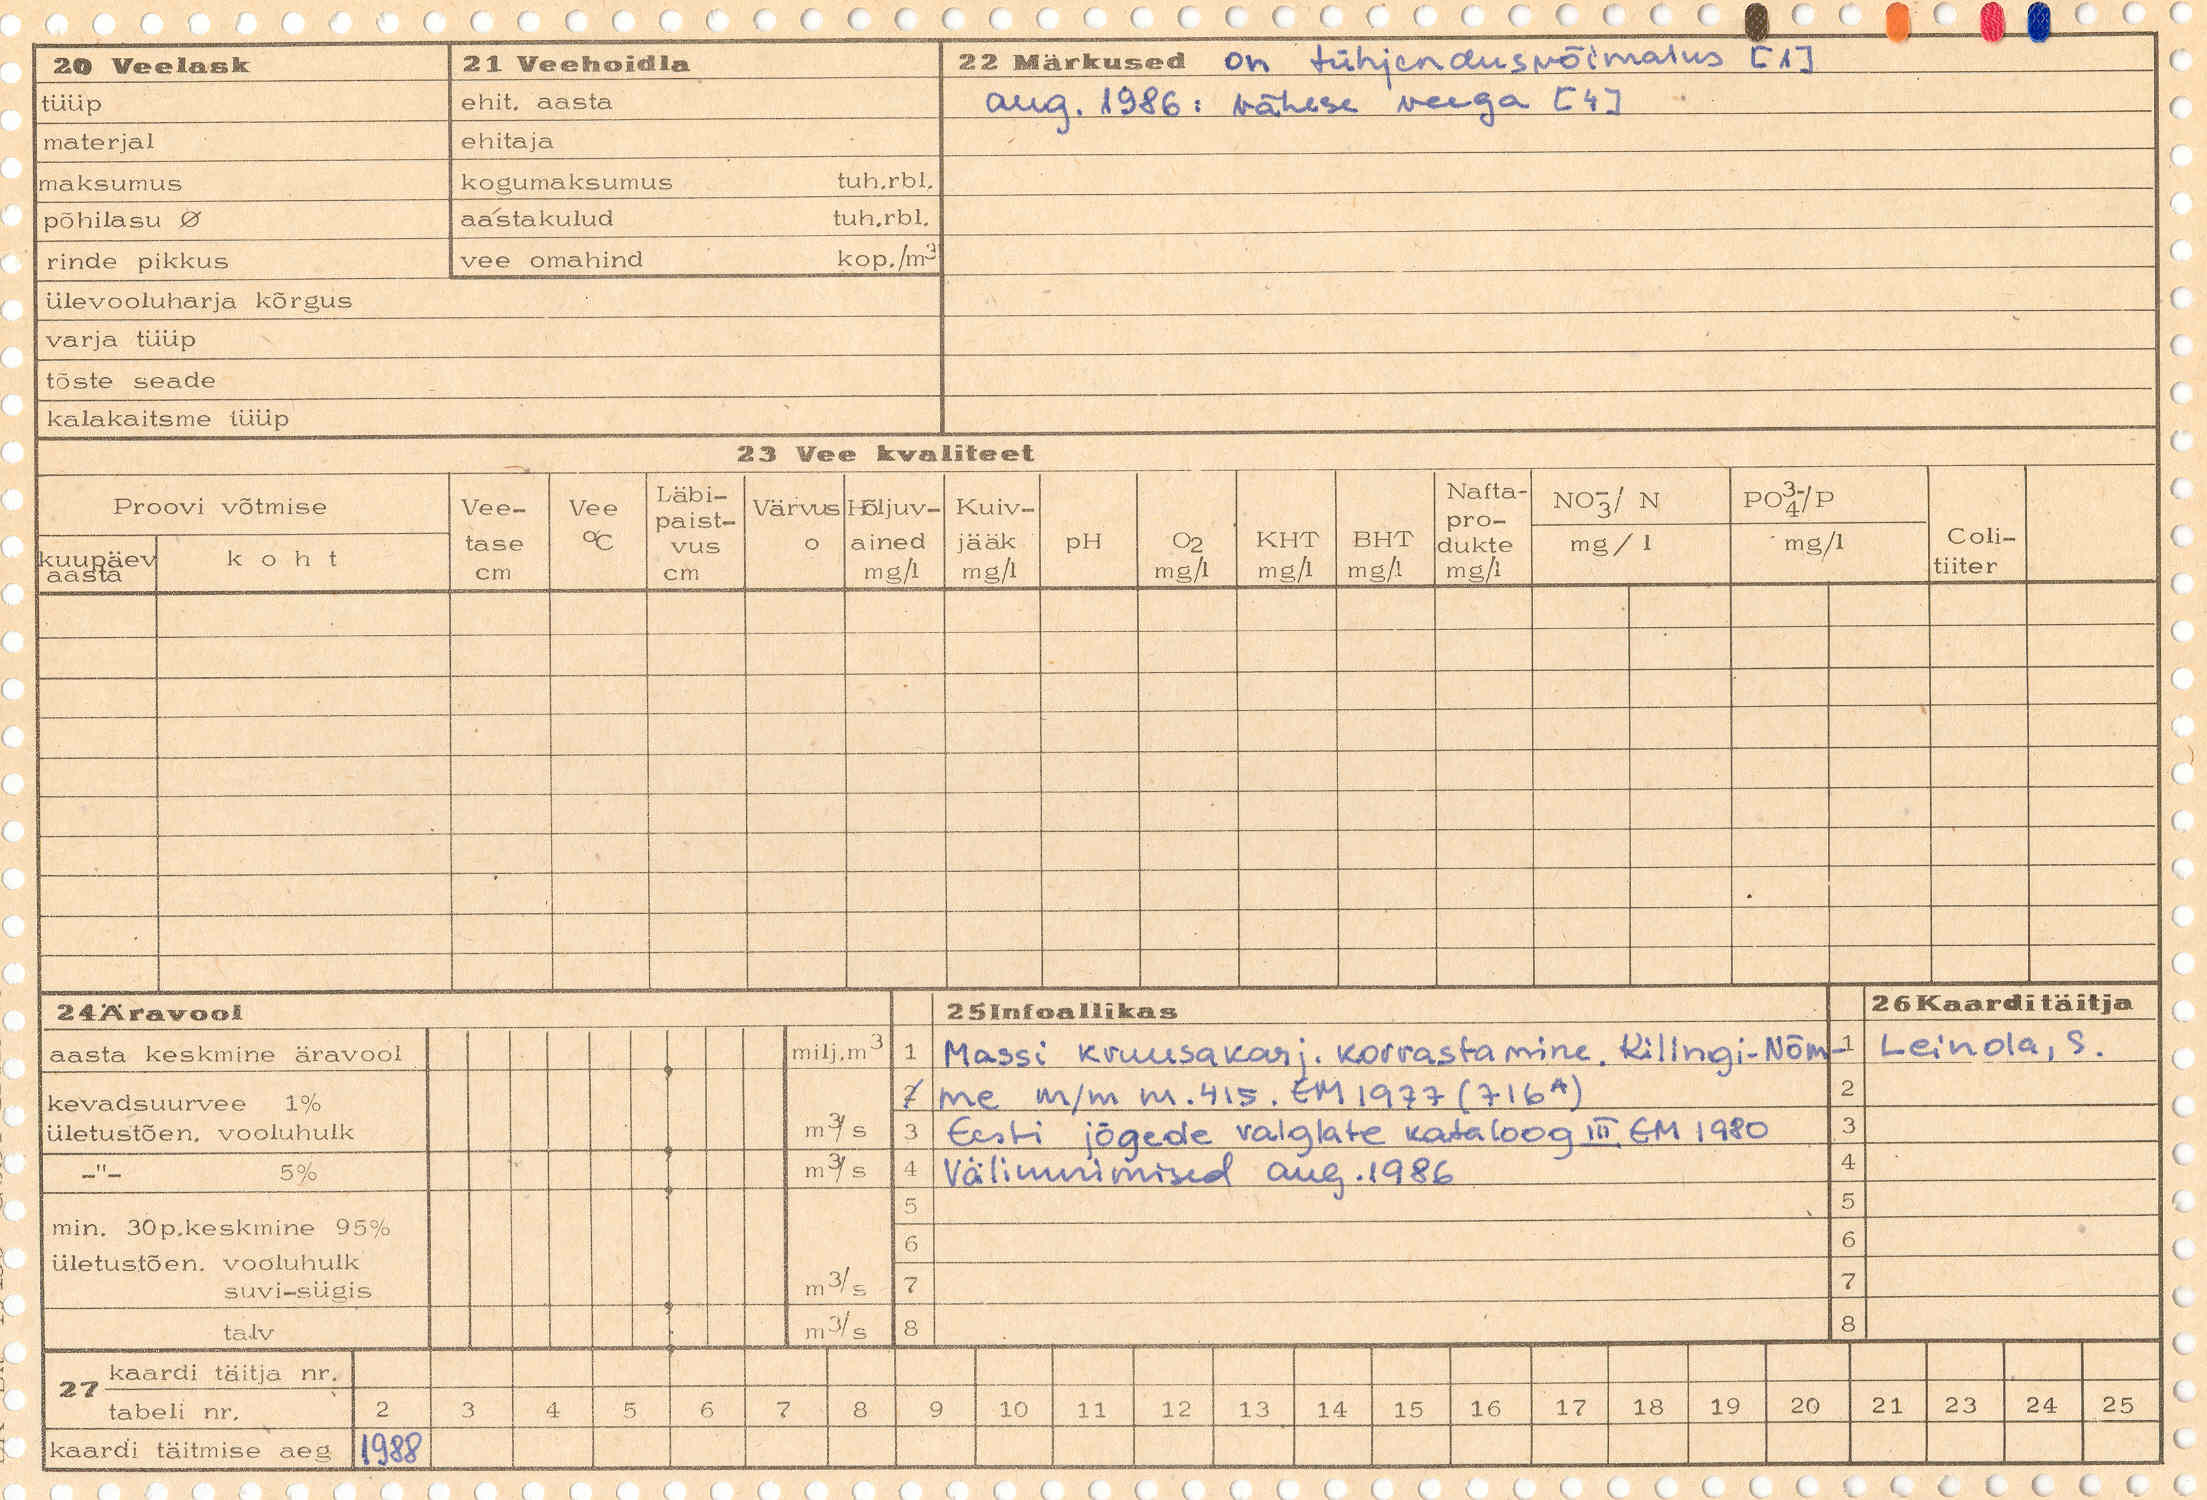 20 Veelask
tüüp
materjal
maksumus
põhilasu Ø
rinde pikkus
ülevooluharja kõrgus
varja tüüp
tõste seade
kalakaitsme tüüp
21 Veehoidla
ehit. aasta
ehitaja
kogumaksumus tuh.rbl.
aastakulud tuh.rbl.
vee omahind kop./m³
22 Märkused on tühjendusvõimalus [1]
aug. 1986: vähese veega [4]
23 Vee kvaliteet
Proovi võtmise
kuupäev aasta
koht
Vee-
tase
cm
Vee
°C
Läbi-
paist-
vus
cm
Värvus
o
Hõljuv-
ained
mg/l
Kuiv-
jääk
mg/l
pH
O2
mg/l
KHT
mg/l
BHT
mg/l
Nafta-
pro-
dukte
mg/l
NO3-/ N
mg/l
PO4 3-/P
mg/l
Coli-
tiiter
24 Äravool
aasta keskmine äravool milj.m3
kevadsuurvee 1%
ületustõen. vooluhulk m3/s
-"- 5% m3/s
min. 30p.keskmine 95%
ületustõen. vooluhulk
suvi-sügis m3/s
talv m3/s
25 Infoallikas
1 Massi kruusakarj. korrastamine. Kilingi-Nõm-
2 me m/m m.415. EM 1977 (716A)
3 Eesti jõgede valglate kataloog III EM 1980
4 Väliuurimised aug.1986
5
6
7
8
26 Kaardi täitja
1 Leinola, S.
2
3
4
5
6
7
8
27 kaardi täitja nr.
tabeli nr. 2 3 4 5 6 7 8 9 10 11 12 13 14 15 16 17 18 19 20 21 23 24 25
kaardi täitmise aeg 1988